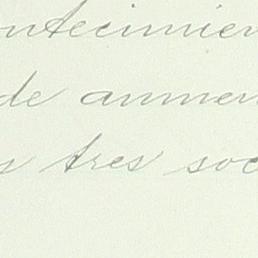 ontecimien
de aumen
s tres soc